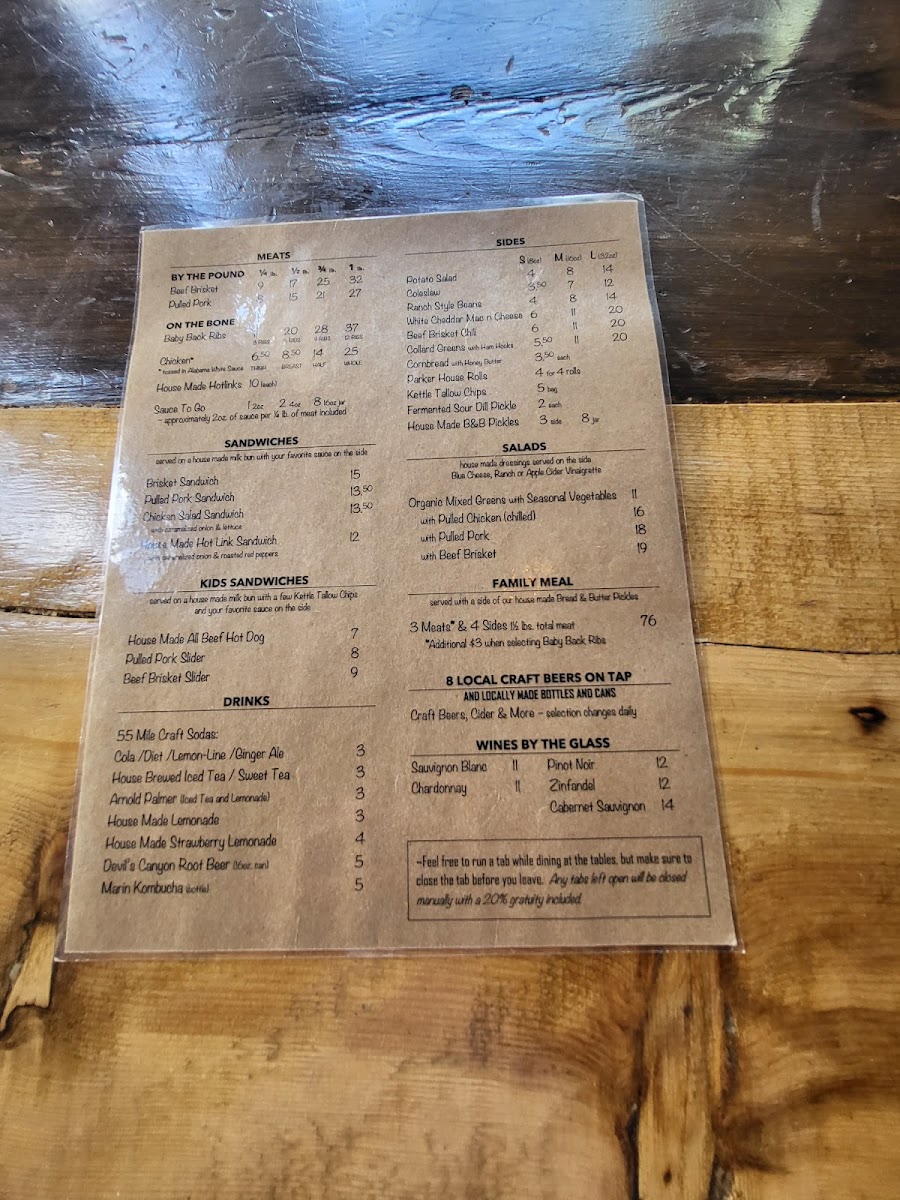 MEATS
BY THE POUND ¼ lb. ½ lb. ¾ lb. 1 lb.
Beef Brisket 9 17 25 32
Pulled Pork 8 15 21 27
ON THE BONE
Baby Back Ribs 11 20 28 37
3 RIBS 6 RIBS 9 RIBS 12 RIBS
Chicken* 6.50 8.50 14 25
* tossed in Alabama White Sauce THIGH BREAST HALF WHOLE
House Made Hotlinks 10 (each)
Sauce To Go 1 2oz 2 4oz 8 16oz jar
~ approximately 2oz. of sauce per ¼ lb. of meat included
SANDWICHES
served on a house made milk bun with your favorite sauce on the side
Brisket Sandwich 15
Pulled Pork Sandwich 13.50
Chicken Salad Sandwich 13.50
with caramelized onion & lettuce
House Made Hot Link Sandwich 12
with caramelized onion & roasted red peppers
KIDS SANDWICHES
served on a house made milk bun with a few Kettle Tallow Chips
and your favorite sauce on the side
House Made All Beef Hot Dog 7
Pulled Pork Slider 8
Beef Brisket Slider 9
DRINKS
55 Mile Craft Sodas:
Cola /Diet /Lemon-Line /Ginger Ale 3
House Brewed Iced Tea / Sweet Tea 3
Arnold Palmer (Iced Tea and Lemonade) 3
House Made Lemonade 3
House Made Strawberry Lemonade 4
Devil's Canyon Root Beer (16oz. can) 5
Marin Kombucha (bottle) 5
SIDES
S (8oz) M (16oz) L (32oz)
Potato Salad 4 8 14
Coleslaw 3.50 7 12
Ranch Style Beans 4 8 14
White Cheddar Mac n Cheese 6 11 20
Beef Brisket Chili 6 11 20
Collard Greens with Ham Hocks 5.50 11 20
Cornbread with Honey Butter 3.50 each
Parker House Rolls 4 for 4 rolls
Kettle Tallow Chips 5 bag
Fermented Sour Dill Pickle 2 each
House Made B&B Pickles 3 side 8 jar
SALADS
house made dressings served on the side
Blue Cheese, Ranch or Apple Cider Vinaigrette
Organic Mixed Greens with Seasonal Vegetables 11
with Pulled Chicken (chilled) 16
with Pulled Pork 18
with Beef Brisket 19
FAMILY MEAL
served with a side of our house made Bread & Butter Pickles
3 Meats* & 4 Sides 1½ lbs. total meat 76
*Additional $3 when selecting Baby Back Ribs
8 LOCAL CRAFT BEERS ON TAP
AND LOCALLY MADE BOTTLES AND CANS
Craft Beers, Cider & More ~ selection changes daily
WINES BY THE GLASS
Sauvignon Blanc 11 Pinot Noir 12
Chardonnay 11 Zinfandel 12
Cabernet Sauvignon 14
~Feel free to run a tab while dining at the tables, but make sure to
close the tab before you leave. Any tabs left open will be closed
manually with a 20% gratuity included.